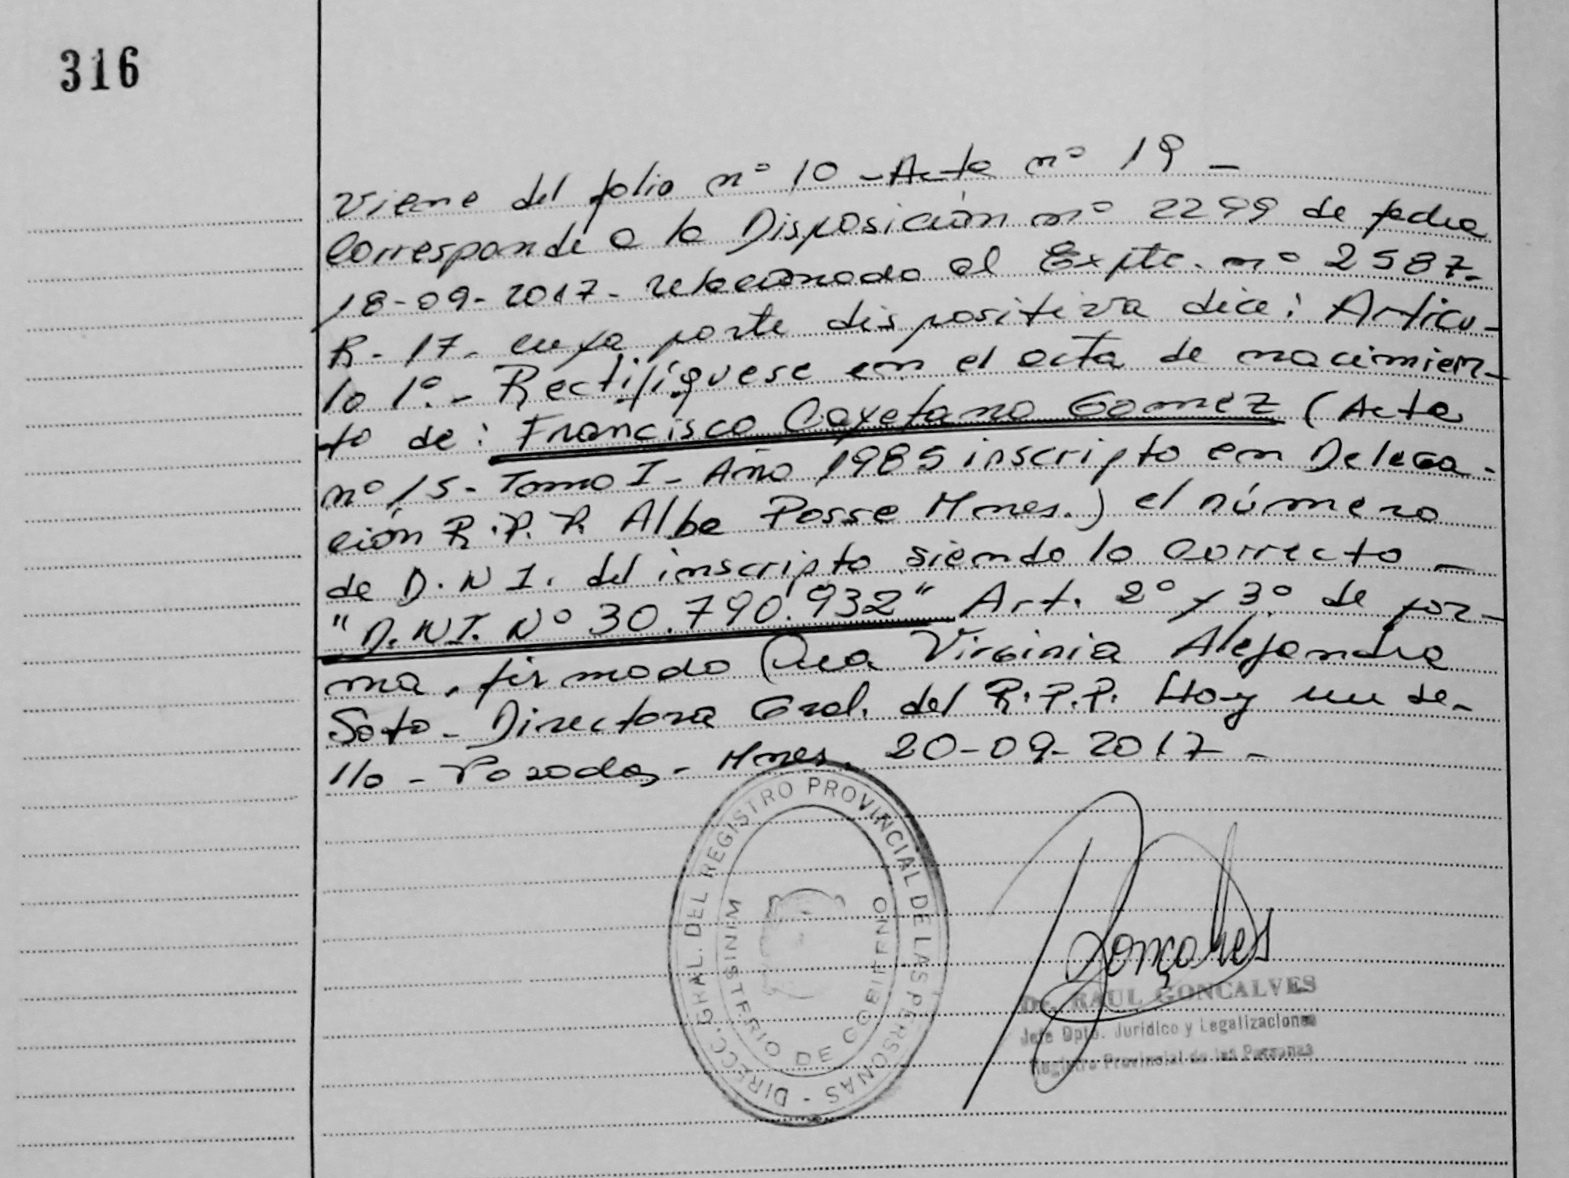 316
Viene del folio nº 10 - Acta nº 19 -
Corresponde a la Disposición nº 2299 de fecha
18-09-2017- relacionado al Expte. nº 2587-
R-17- cuya parte dispositiva dice: Artícu-
lo 1º.- Rectifíquese en el acta de nacimien-
to de: Francisco Cayetano Gomez (Acta
nº 15- Tomo I- Año 1985 inscripto en Delega-
ción R.P.P. Alba Posse Mnes.) el número
de D.N.I. del inscripto siendo lo correcto -
"D.N.I. Nº 30.790.932" Art. 2º y 3º de for-
ma, firmado Virginia Alejandra
Soto - Directora Gral. del R.P.P. Hoy un se-
llo - Posadas - Mnes. 20-09-2017 -
DIRECC. GRAL. DEL REGISTRO PROVINCIAL DE LAS PERSONAS -
MINISTERIO DE GOBIERNO
Gonçalves
Dr. RAUL GONCALVES
Jefe Dpto. Jurídico y Legalizaciones
Registro Provincial de las Personas